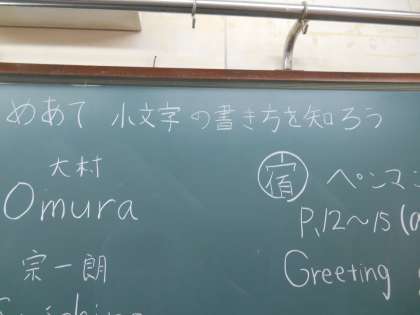 めあて 小文字の書き方を知ろう
大村
Omura
宗一朗
宿 ペンマン
P.12〜15 (a
Greeting